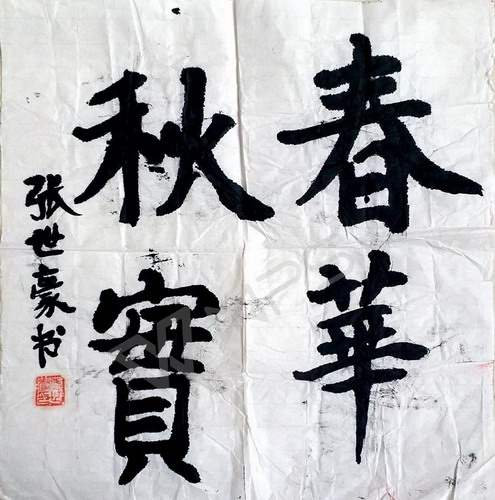 春華
秋實
张世豪书